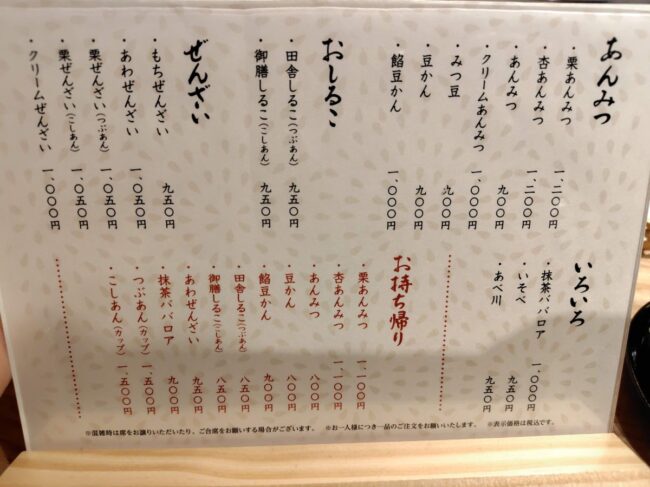 あんみつ
・栗あんみつ 一、二〇〇円
・杏あんみつ 一、二〇〇円
・あんみつ 九〇〇円
・クリームあんみつ 一、〇〇〇円
・みつ豆 九〇〇円
・豆かん 九〇〇円
・餡豆かん 一、〇〇〇円
おしるこ
・田舎しるこ(つぶあん) 九五〇円
・御膳しるこ(こしあん) 九五〇円
ぜんざい
・もちぜんざい 九五〇円
・あわぜんざい 一、〇五〇円
・栗ぜんざい(つぶあん) 一、〇五〇円
・栗ぜんざい(こしあん) 一、〇五〇円
・クリームぜんざい 一、〇〇〇円
いろいろ
・抹茶ババロア 一、〇〇〇円
・いそべ 九五〇円
・あべ川 九五〇円
お持ち帰り
・栗あんみつ 一、一〇〇円
・杏あんみつ 一、一〇〇円
・あんみつ 八〇〇円
・豆かん 八〇〇円
・餡豆かん 九〇〇円
・田舎しるこ(つぶあん) 八五〇円
・御膳しるこ(こしあん) 八五〇円
・あわぜんざい 九五〇円
・抹茶ババロア 九〇〇円
・つぶあん(カップ) 一、五〇〇円
・こしあん(カップ) 一、五〇〇円
※混雑時は席をお譲りいただいたり、ご台席をお願いする場合がございます。 ※お一人様につき一品のご注文をお願いします。 ※表示価格は税込です。